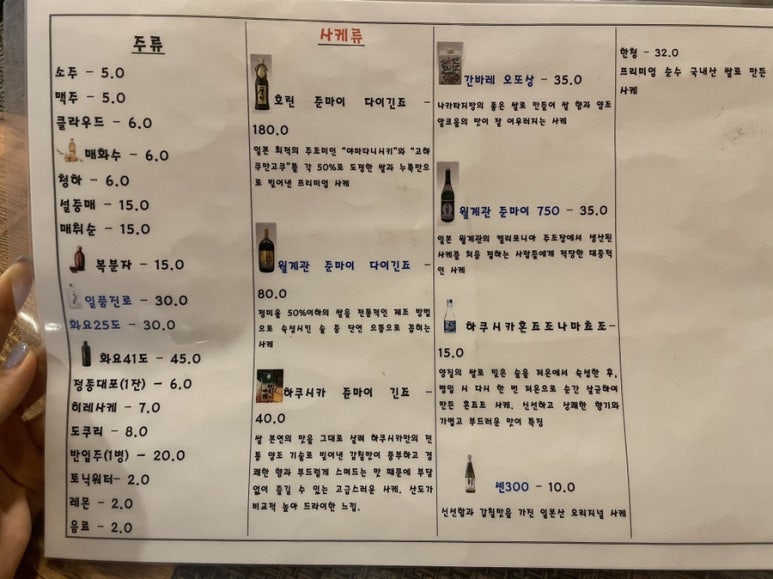 주류
소주 - 5.0
맥주 - 5.0
클라우드 - 6.0
매화수 - 6.0
청하 - 6.0
설중매 - 15.0
매취순 - 15.0
복분자 - 15.0
일품진로 - 30.0
화요25도 - 30.0
화요41도 - 45.0
정종대포(1잔) - 6.0
히레사케 - 7.0
도쿠리 - 8.0
반입주(1병) - 20.0
토닉워터 - 2.0
레몬 - 2.0
음료 - 2.0
사케류
호린 쥰마이 다이긴죠 -
180.0
일본 최적의 주조미인 "야마다니시키"와 "고하
쿠만고쿠"를 각 50%로 도정한 쌀과 누룩만으
로 빚어낸 프리미엄 사케
월계관 쥰마이 다이긴죠 -
80.0
정미율 50%이하의 쌀을 전통적인 제조 방법
으로 숙성시킨 술 중 단연 으뜸으로 꼽히는
사케
하쿠시카 쥰마이 긴죠 -
40.0
쌀 본연의 맛을 그대로 살려 하쿠시카만의 전
통 양조 기술로 빚어낸 감칠맛이 풍부하고 경
쾌한 향과 부드럽게 스며드는 맛 때문에 부담
없이 즐길 수 있는 고급스러운 사케. 산도가
비교적 높아 드라이한 느낌.
간바레 오또상 - 35.0
나카타지방의 좋은 쌀로 만들어 쌀 향과 양조
알코올의 맛이 잘 어우러지는 사케
월계관 쥰마이 750 - 35.0
일본 월계관의 켈리포니아 주조장에서 생산된
사케를 처음 접하는 사람들에게 적당한 대중적
인 사케
하쿠시카혼죠조나마죠조-
15.0
양질의 쌀로 빚은 술을 저온에서 숙성한 후,
병입 시 다시 한 번 저온으로 순간 살균하여
만든 혼죠조 사케. 신선하고 상쾌한 향기와
가볍고 부드러운 맛이 특징
쎈300 - 10.0
신선함과 감칠맛을 가진 일본산 오리지널 사케
한청 - 32.0
프리미엄 순수 국내산 쌀로 만든
사케